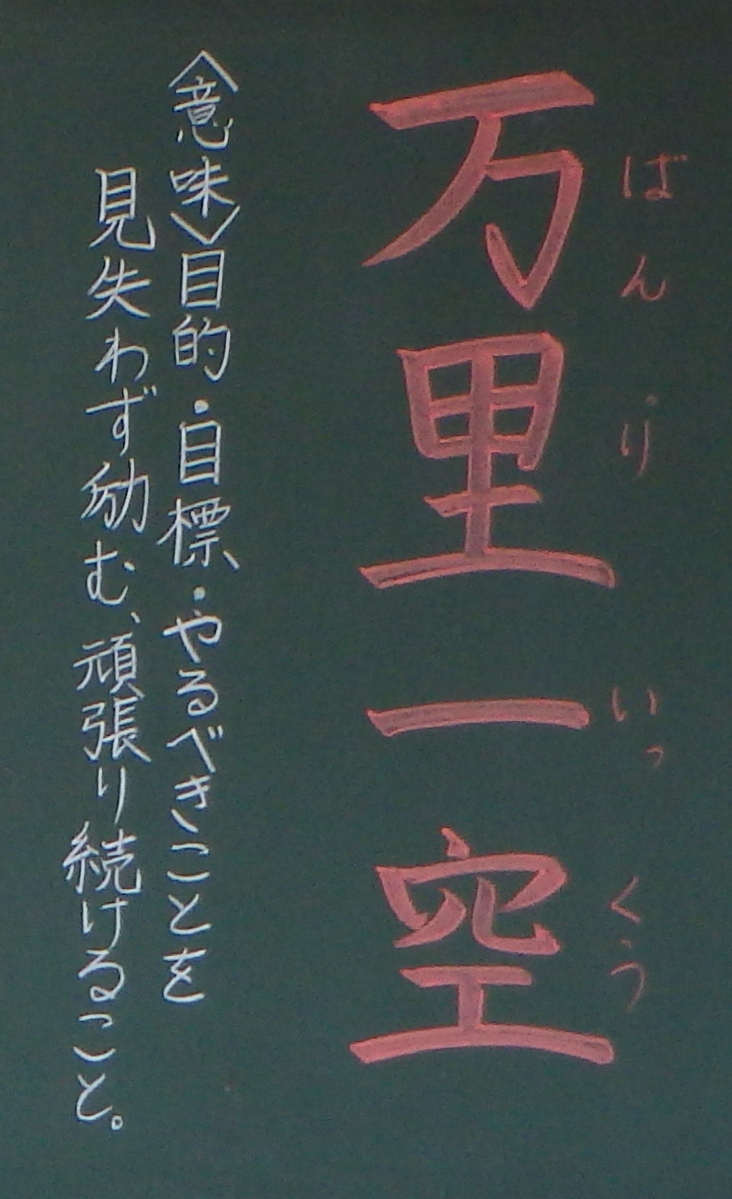 ばんりいっくう
万里一空
〈意味〉目的・目標・やるべきことを
見失わず励む、頑張り続けること。